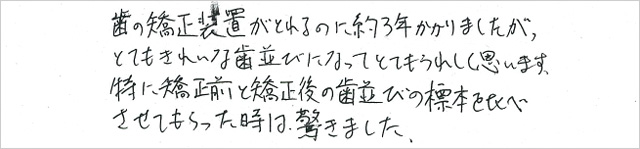 歯の矯正装置がとれるのに約3年かかりましたが、
とてもきれいな歯並びになってとてもうれしく思います。
特に矯正前と矯正後の歯並びの標本を比べ
させてもらった時は、驚きました。